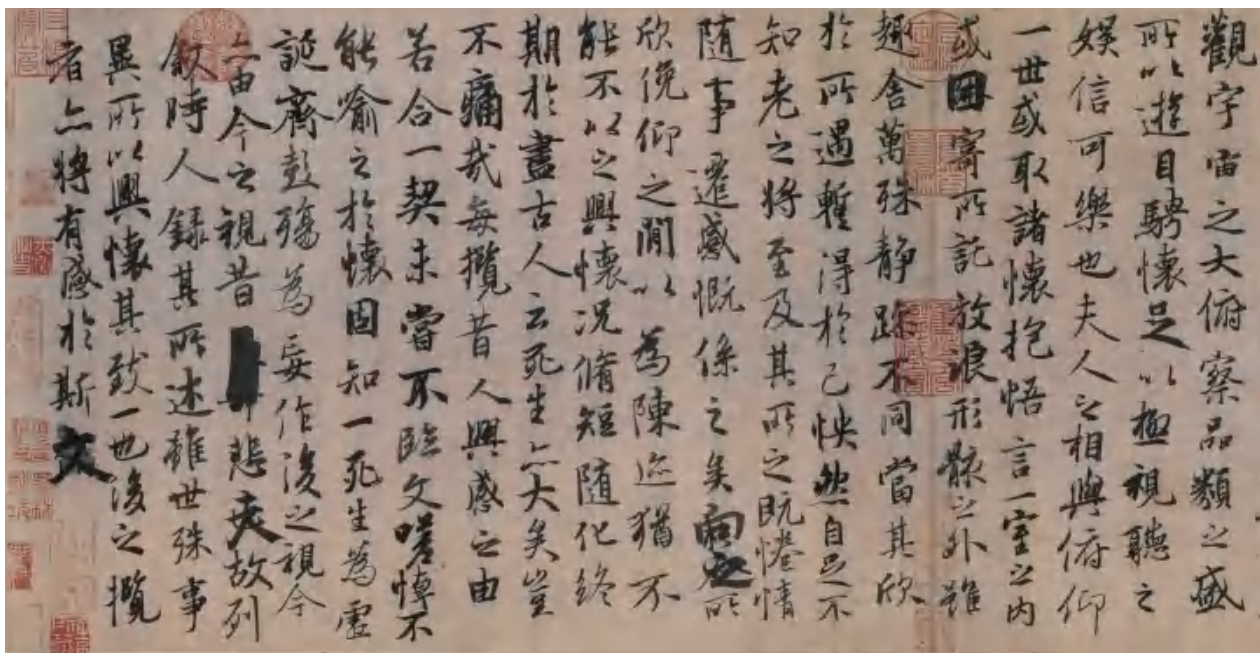 觀宇宙之大俯察品類之盛
所以遊目騁懷足以極視聽之
娛信可樂也夫人之相與俯仰
一世或取諸懷抱悟言一室之內
或因寄所託放浪形骸之外雖
趣舍萬殊靜躁不同當其欣
於所遇暫得於己怏然自足不
知老之將至及其所之既惓情
隨事遷感慨係之矣向之所
欣俛仰之間以為陳迹猶不
能不以之興懷況脩短隨化終
期於盡古人云死生亦大矣豈
不痛哉每攬昔人興感之由
若合一契未嘗不臨文嗟悼不
能喻之於懷固知一死生為虛
誕齊彭殤為妄作後之視今
亦由今之視昔悲夫故列
敘時人錄其所述雖世殊事
異所以興懷其致一也後之攬
者亦將有感於斯文